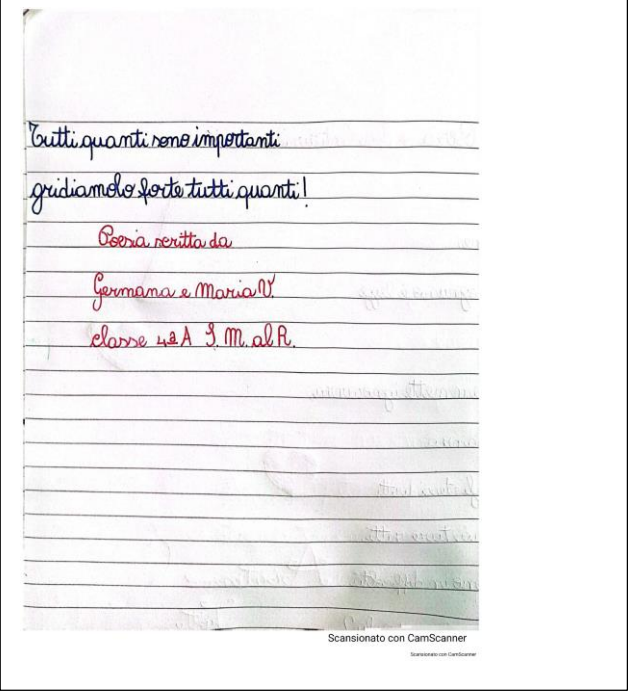 Tutti quanti sono importanti
gridiamolo forte tutti quanti!
Poesia scritta da
Germana e Maria V.
classe 4ª A S. M. al R.
Scansionato con CamScanner
Scansionato con CamScanner